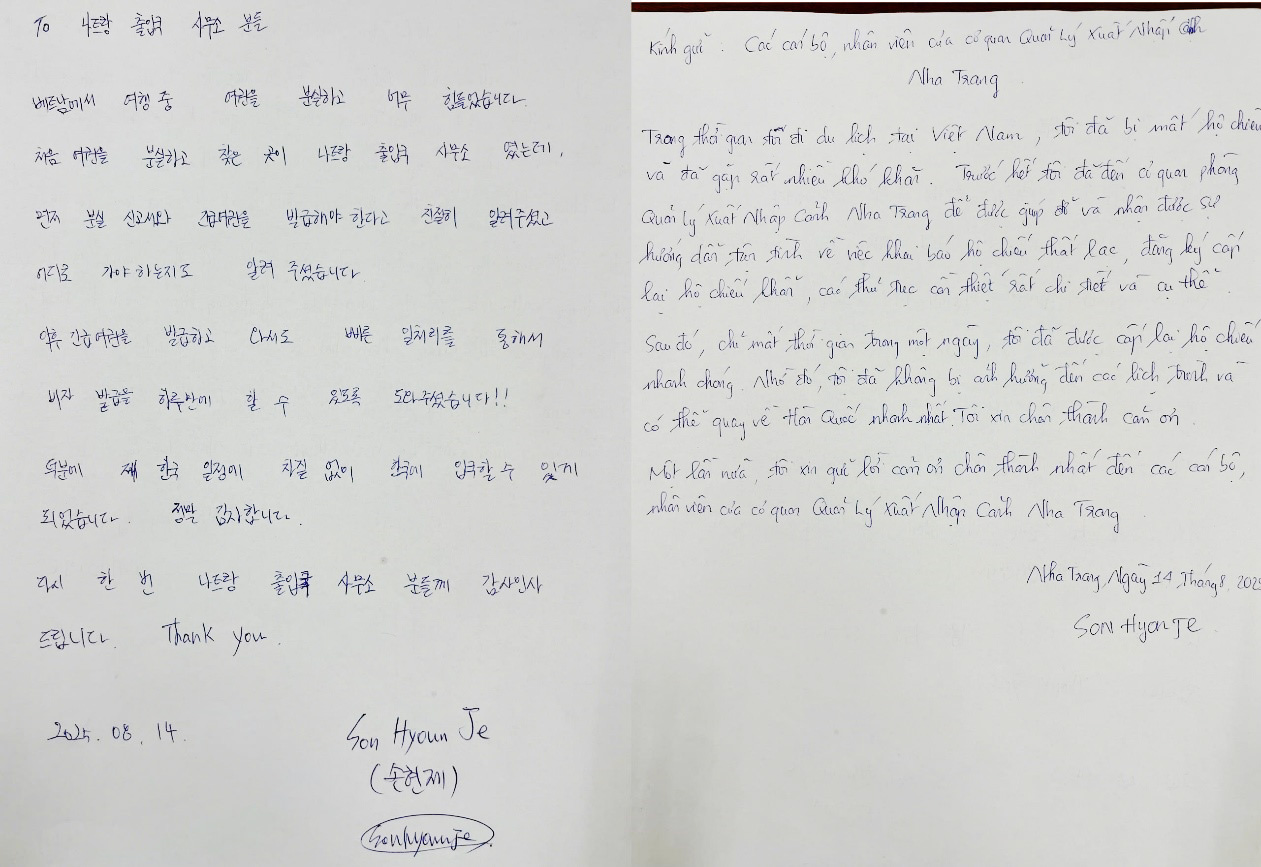 To 나트랑 출입국 사무소 분들
베트남에서 여행 중 여권을 분실하고 너무 힘들었습니다.
처음 여권을 분실하고 찾은 곳이 나트랑 출입국 사무소 였는데,
먼저 분실 신고서와 긴급여권을 발급해야 한다고 친절히 알려주셨고
어디로 가야 하는지도 알려 주셨습니다.
이후 긴급여권을 발급하고 와서도 빠른 일처리를 통해서
비자 발급을 하루만에 할 수 있도록 도와주셨습니다!!
덕분에 제 한국 일정에 차질 없이 한국에 입국할 수 있게
되었습니다. 정말 감사합니다.
다시 한 번 나트랑 출입국 사무소 분들께 감사인사
드립니다. Thank you.
2025. 08. 14.
Son Hyoun Je
(손현제)
Sonhyounje
Kính gửi: Các cán bộ, nhân viên của cơ quan Quản Lý Xuất Nhập Cảnh
Nha Trang
Trong thời gian tôi đi du lịch tại Việt Nam, tôi đã bị mất hộ chiếu
và đã gặp rất nhiều khó khăn. Trước hết tôi đã đến cơ quan phòng
Quản Lý Xuất Nhập Cảnh Nha Trang để được giúp đỡ và nhận được sự
hướng dẫn tận tình về việc khai báo hộ chiếu thất lạc, đăng ký cấp
lại hộ chiếu khẩn, các thủ tục cần thiết rất chi tiết và cụ thể.
Sau đó, chỉ mất thời gian trong một ngày, tôi đã được cấp lại hộ chiếu
nhanh chóng. Nhờ đó, tôi đã không bị ảnh hưởng đến các lịch trình và
có thể quay về Hàn Quốc nhanh nhất. Tôi xin chân thành cảm ơn.
Một lần nữa, tôi xin gửi lời cảm ơn chân thành nhất đến các cán bộ,
nhân viên của cơ quan Quản Lý Xuất Nhập Cảnh Nha Trang
Nha Trang, Ngày 14, Tháng 8, 2025
SON HYON JE